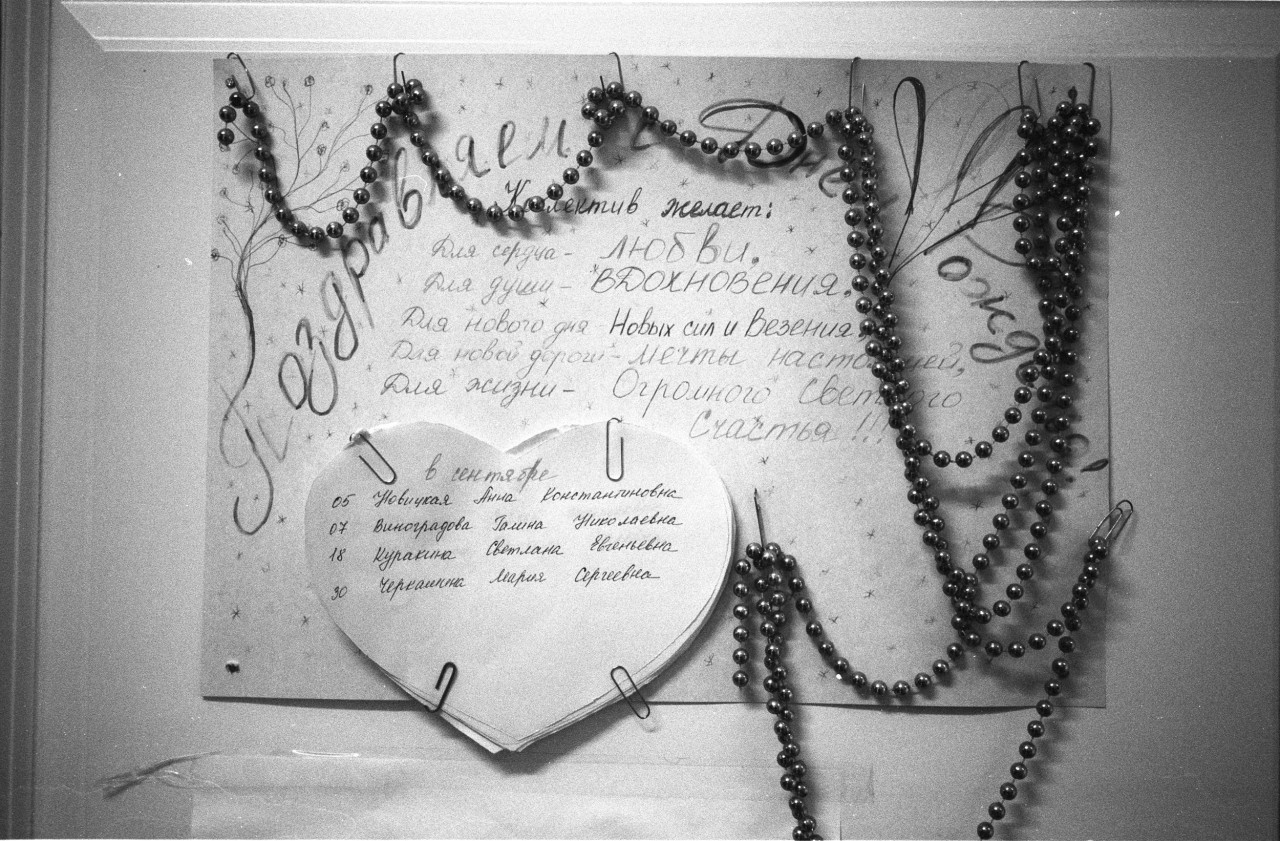 Поздравляем с Днем Рожд
Коллектив желает:
Для сердца - любви.
Для души - вДохновения,
Для нового дня - Новых сил и Везения,
Для новой дороги - мечты настоящей,
Для жизни - Огромного Светлого
Счастья !!!
в сентябре
05 Новицкая Анна Константиновна
07 Виноградова Галина Николаевна
18 Куракина Светлана Евгеньевна
30 Мария Сергеевна